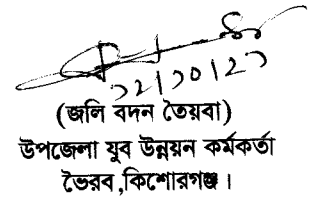 ১২।১০।২১
(জলি বদন তৈয়বা)
উপজেলা যুব উন্নয়ন কর্মকর্তা
ভৈরব,কিশোরগঞ্জ।